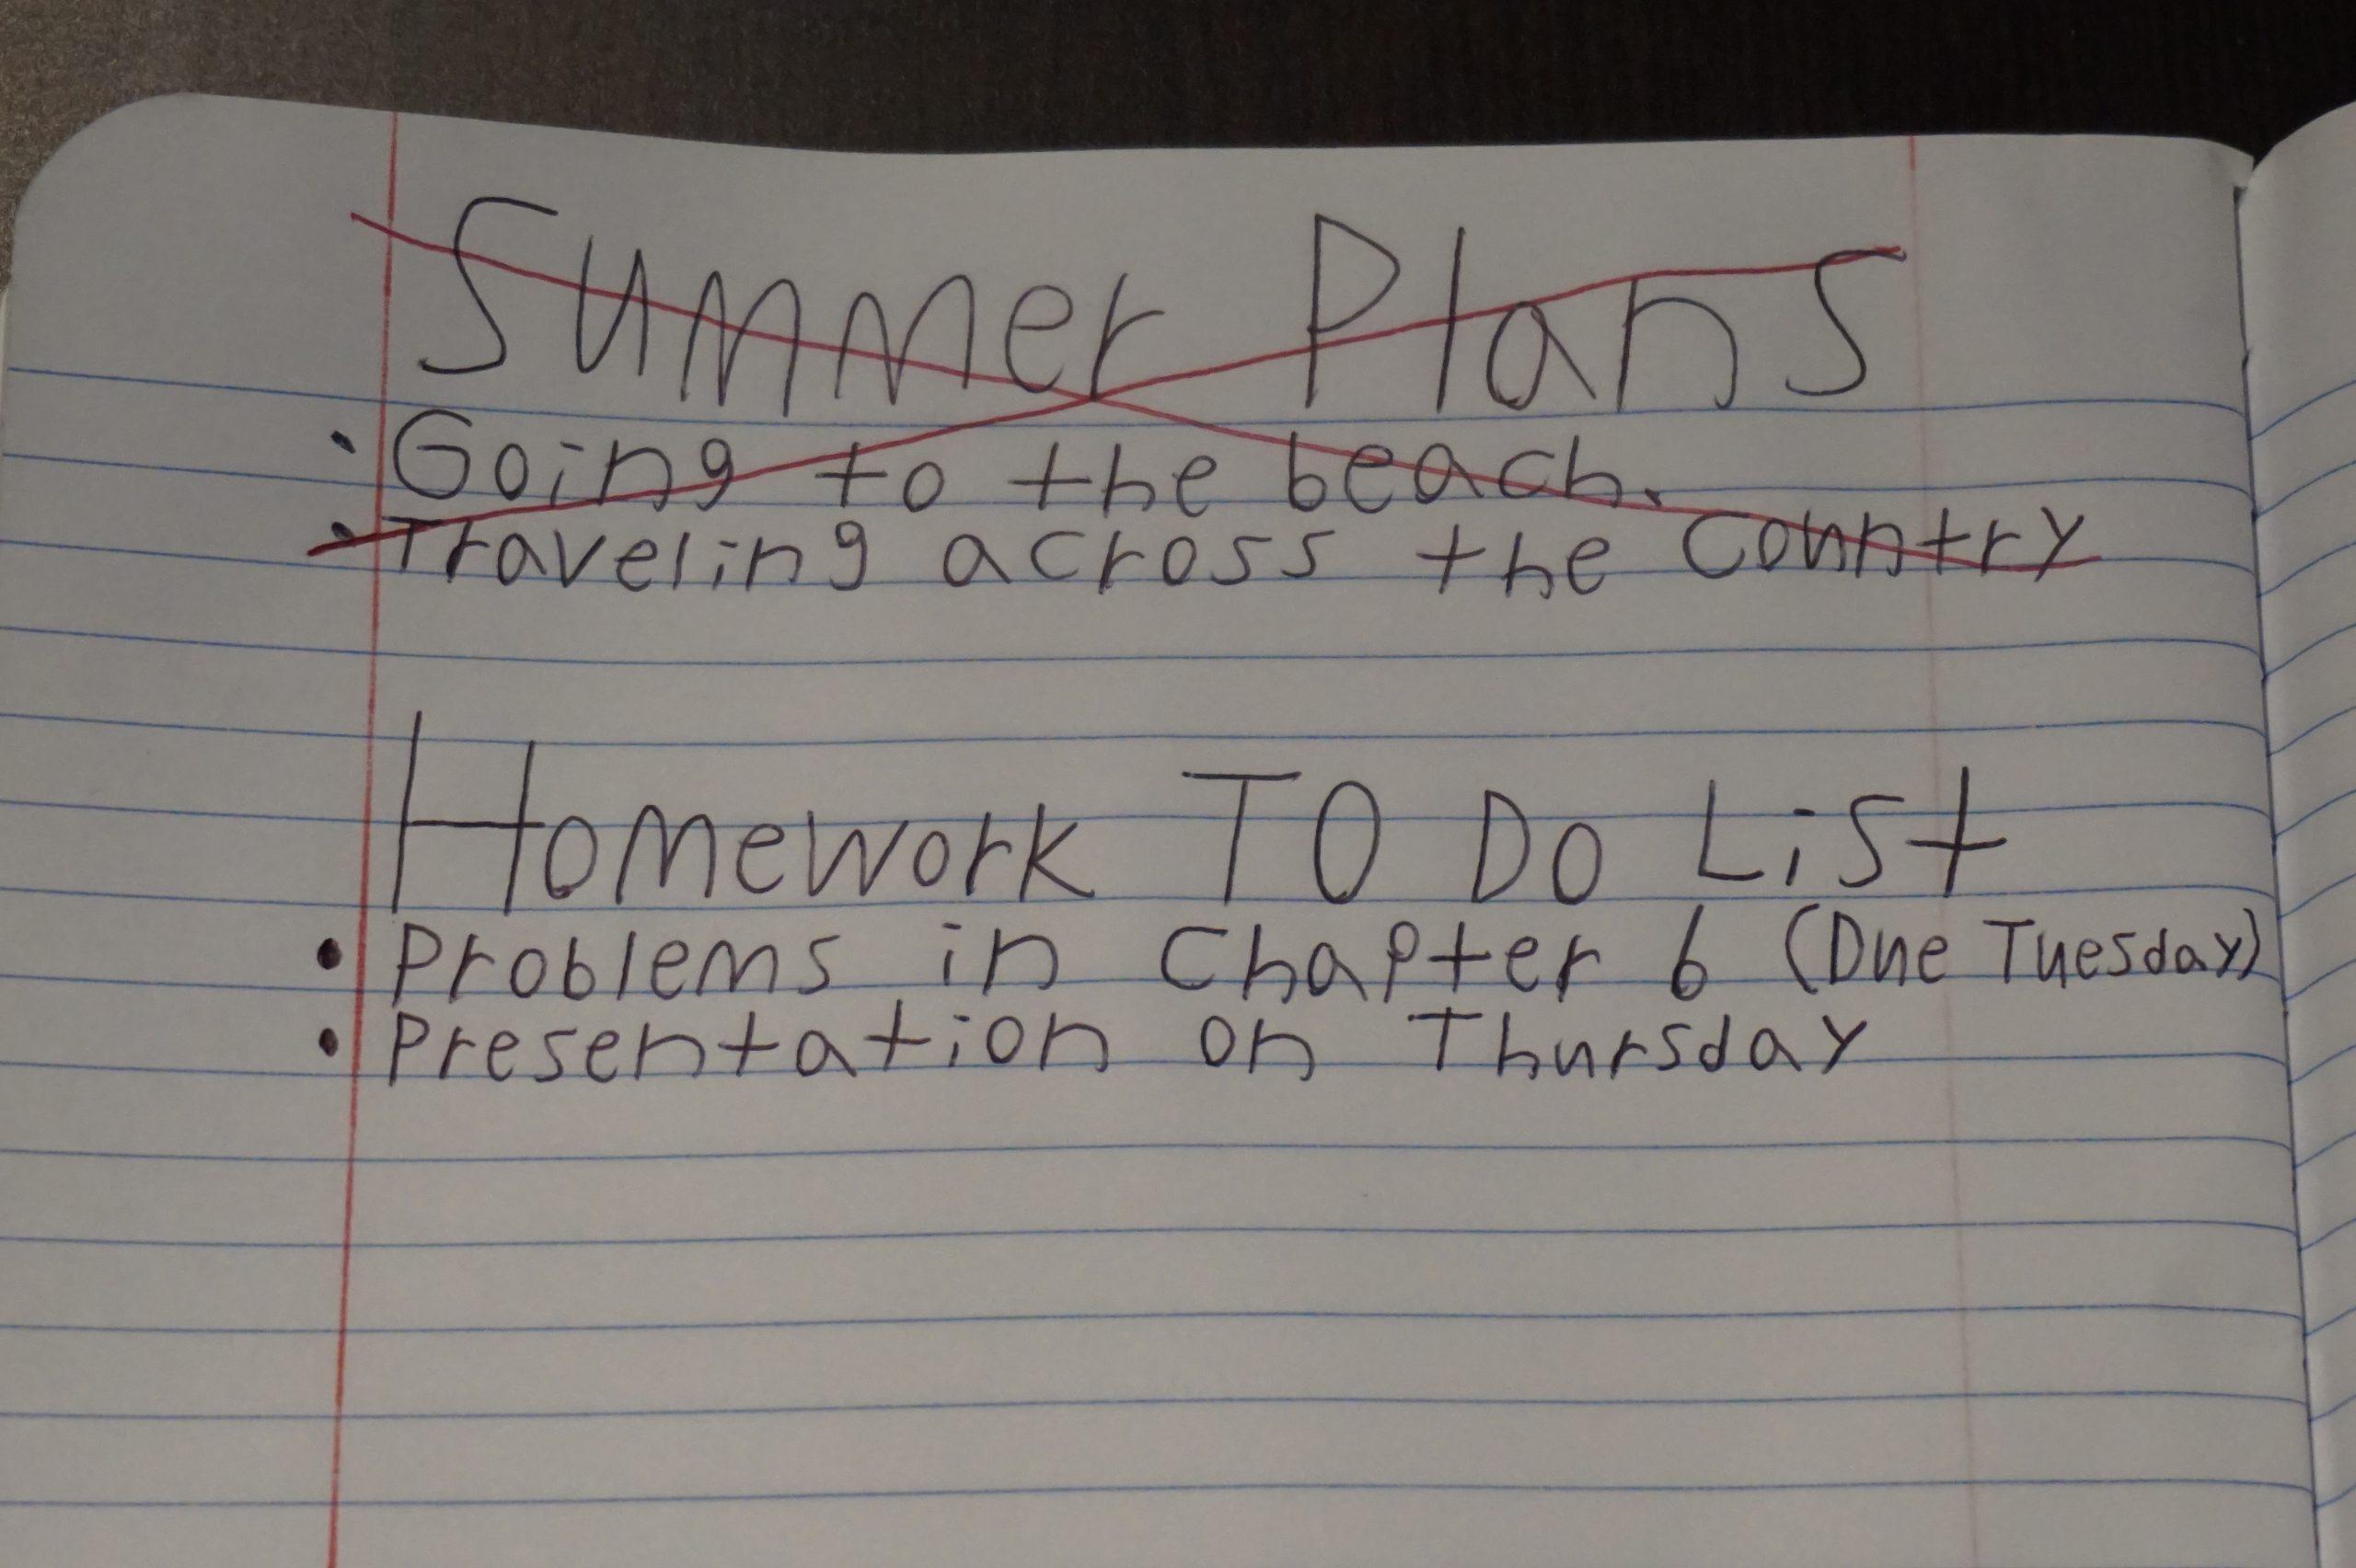 Summer Plans
• Going to the beach.
• Traveling across the country
Homework TO Do List
• Problems in Chapter 6 (Due Tuesday)
• Presentation on Thursday